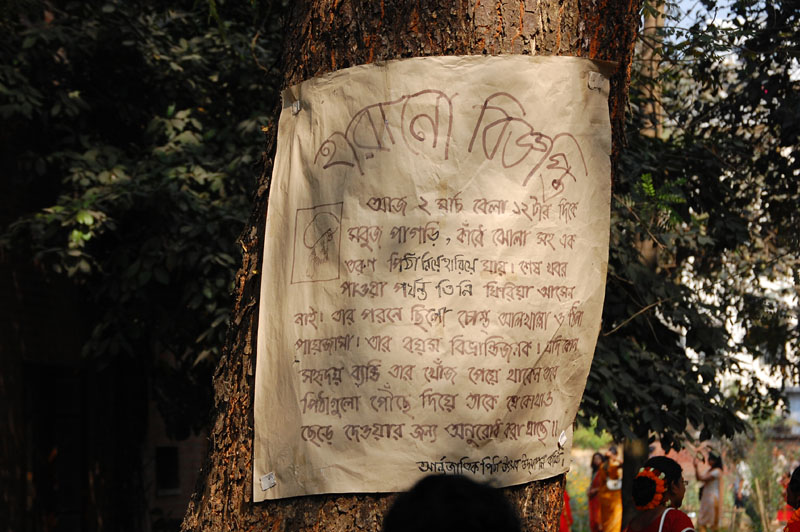 হারানো বিজ্ঞপ্তি
আজ ২ মার্চ বেলা ১২টার দিকে
সবুজ পাগড়ি, কাঁধে ঝোলা সহ এক
তরুণ পিঠা নিয়ে হারিয়ে যায়। শেষ খবর
পাওয়া পর্যন্ত তিনি ফিরিয়া আসেন
নাই। তার পরনে ছিলো চোস্ত আলখাল্লা ও ঢিলা
পায়জামা। তার বয়স বিভ্রান্তিজনক। যদি কোন
সহৃদয় ব্যক্তি তার খোঁজ পেয়ে থাকেন তবে
পিঠাগুলো পৌঁছে দিয়ে তাকে যে কোথাও
ছেড়ে দেওয়ার জন্য অনুরোধ করা যাচ্ছে।।
আর্ন্তজাতিক পিঠা উৎসব উদযাপন কমিটি।